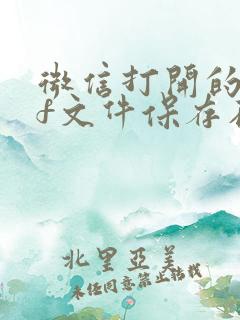 微信打開的
f文件保存在
北里亞美
未经同意禁止转载